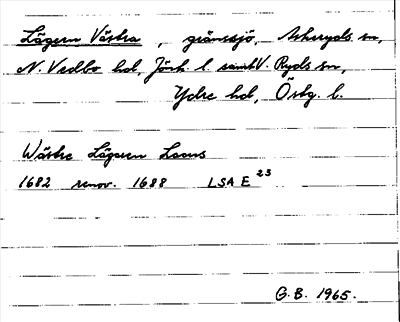 Lägern Västra, gränssjö, Askeryds sn,
N. Vedbo hd, Jönk. l. samt V. Ryds sn,
Ydre hd, Östg. l.
Wästre Lägeren Lacus
1682 renov. 1688 LSA E 23
G.B. 1965.